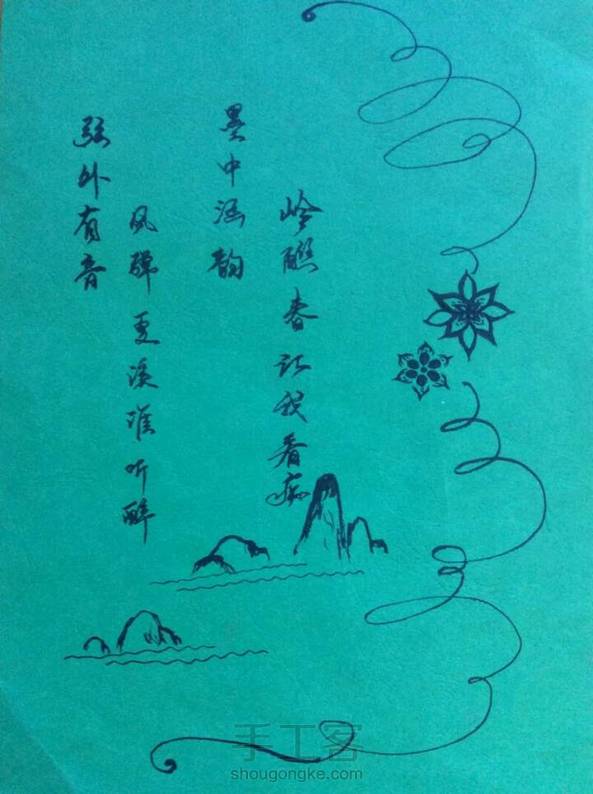 岭醮春江我看痴
墨中涵韵
风弹夏溪谁听醉
弦外有音
手工客
shougongke.com